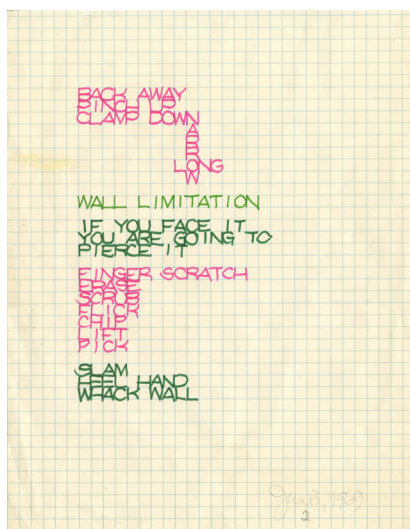 BACK AWAY
PINCH UP
CLAMP DOWN
A
R
R
LONG
W
WALL LIMITATION
IF YOU FACE IT
YOU ARE GOING TO
PIERCE IT
FINGER SCRATCH
ERASE
SCRUB
FLICK
CHIP
LIFT
PICK
SLAM
HEEL HAND
WHACK WALL
June 3, 1969
2